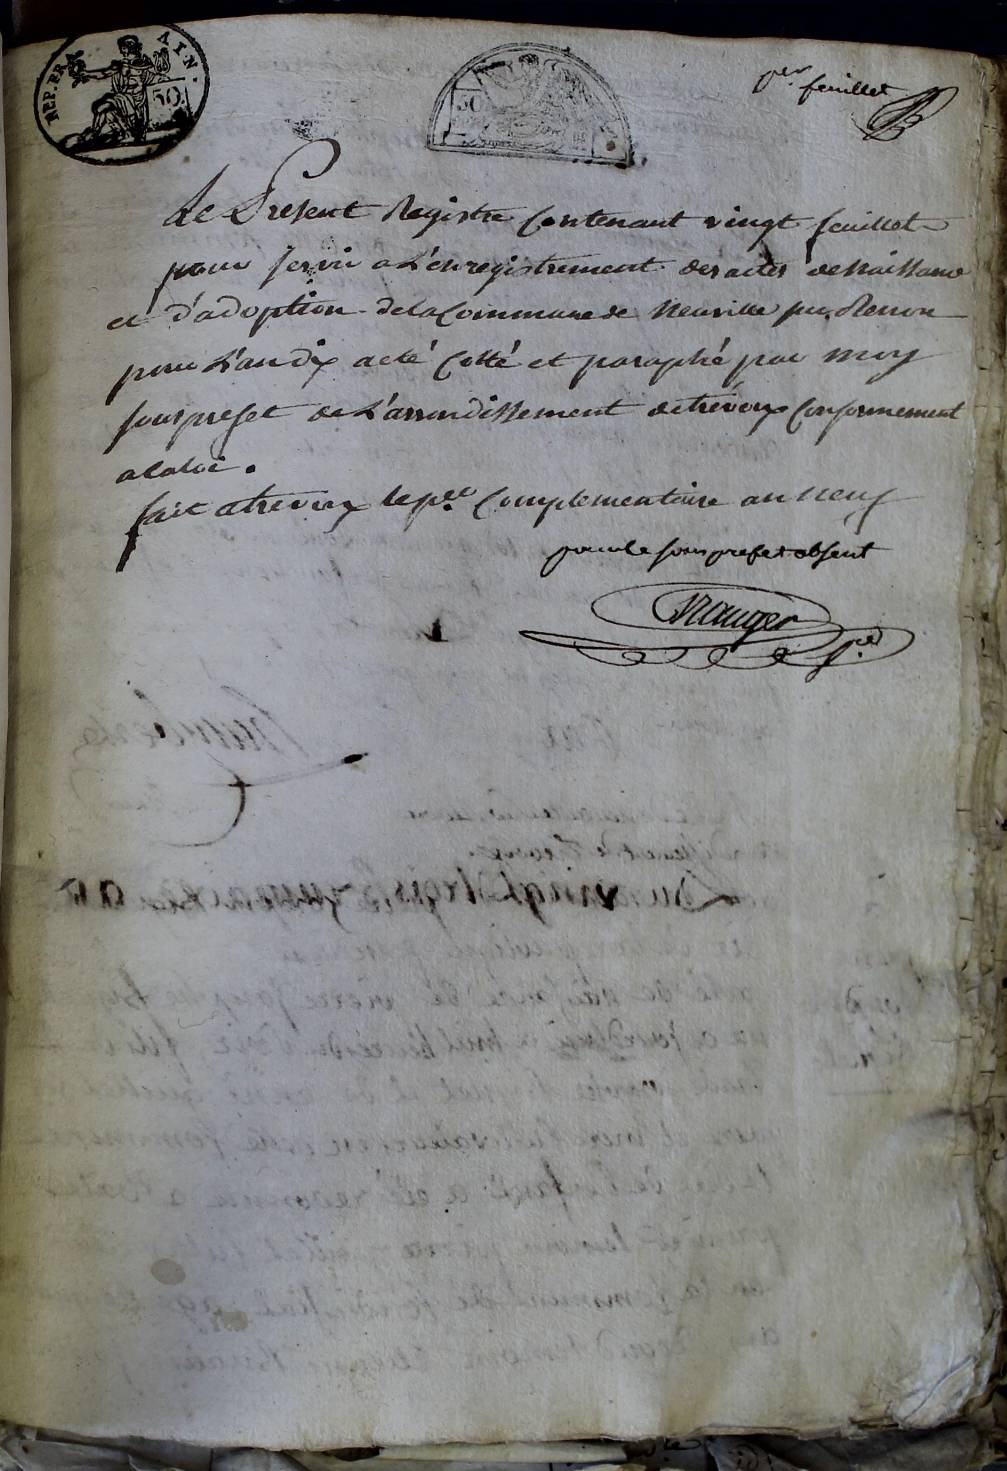 REP. FRA AIN.
50
50
per feuillet
Le Present Registre Contenant vingt feuillet
pour servir a L'enregistrement des actes de Naissance
et d'adoption de la Commune de Neuville sur Renon
pour L'an dix a eté Cotté et paraphé par moy
sousprefet de L'arrondissement de trevoux Conformement
a la loi.
fait a trevoux le per Complementaire an neuf
pour le sous prefet absent